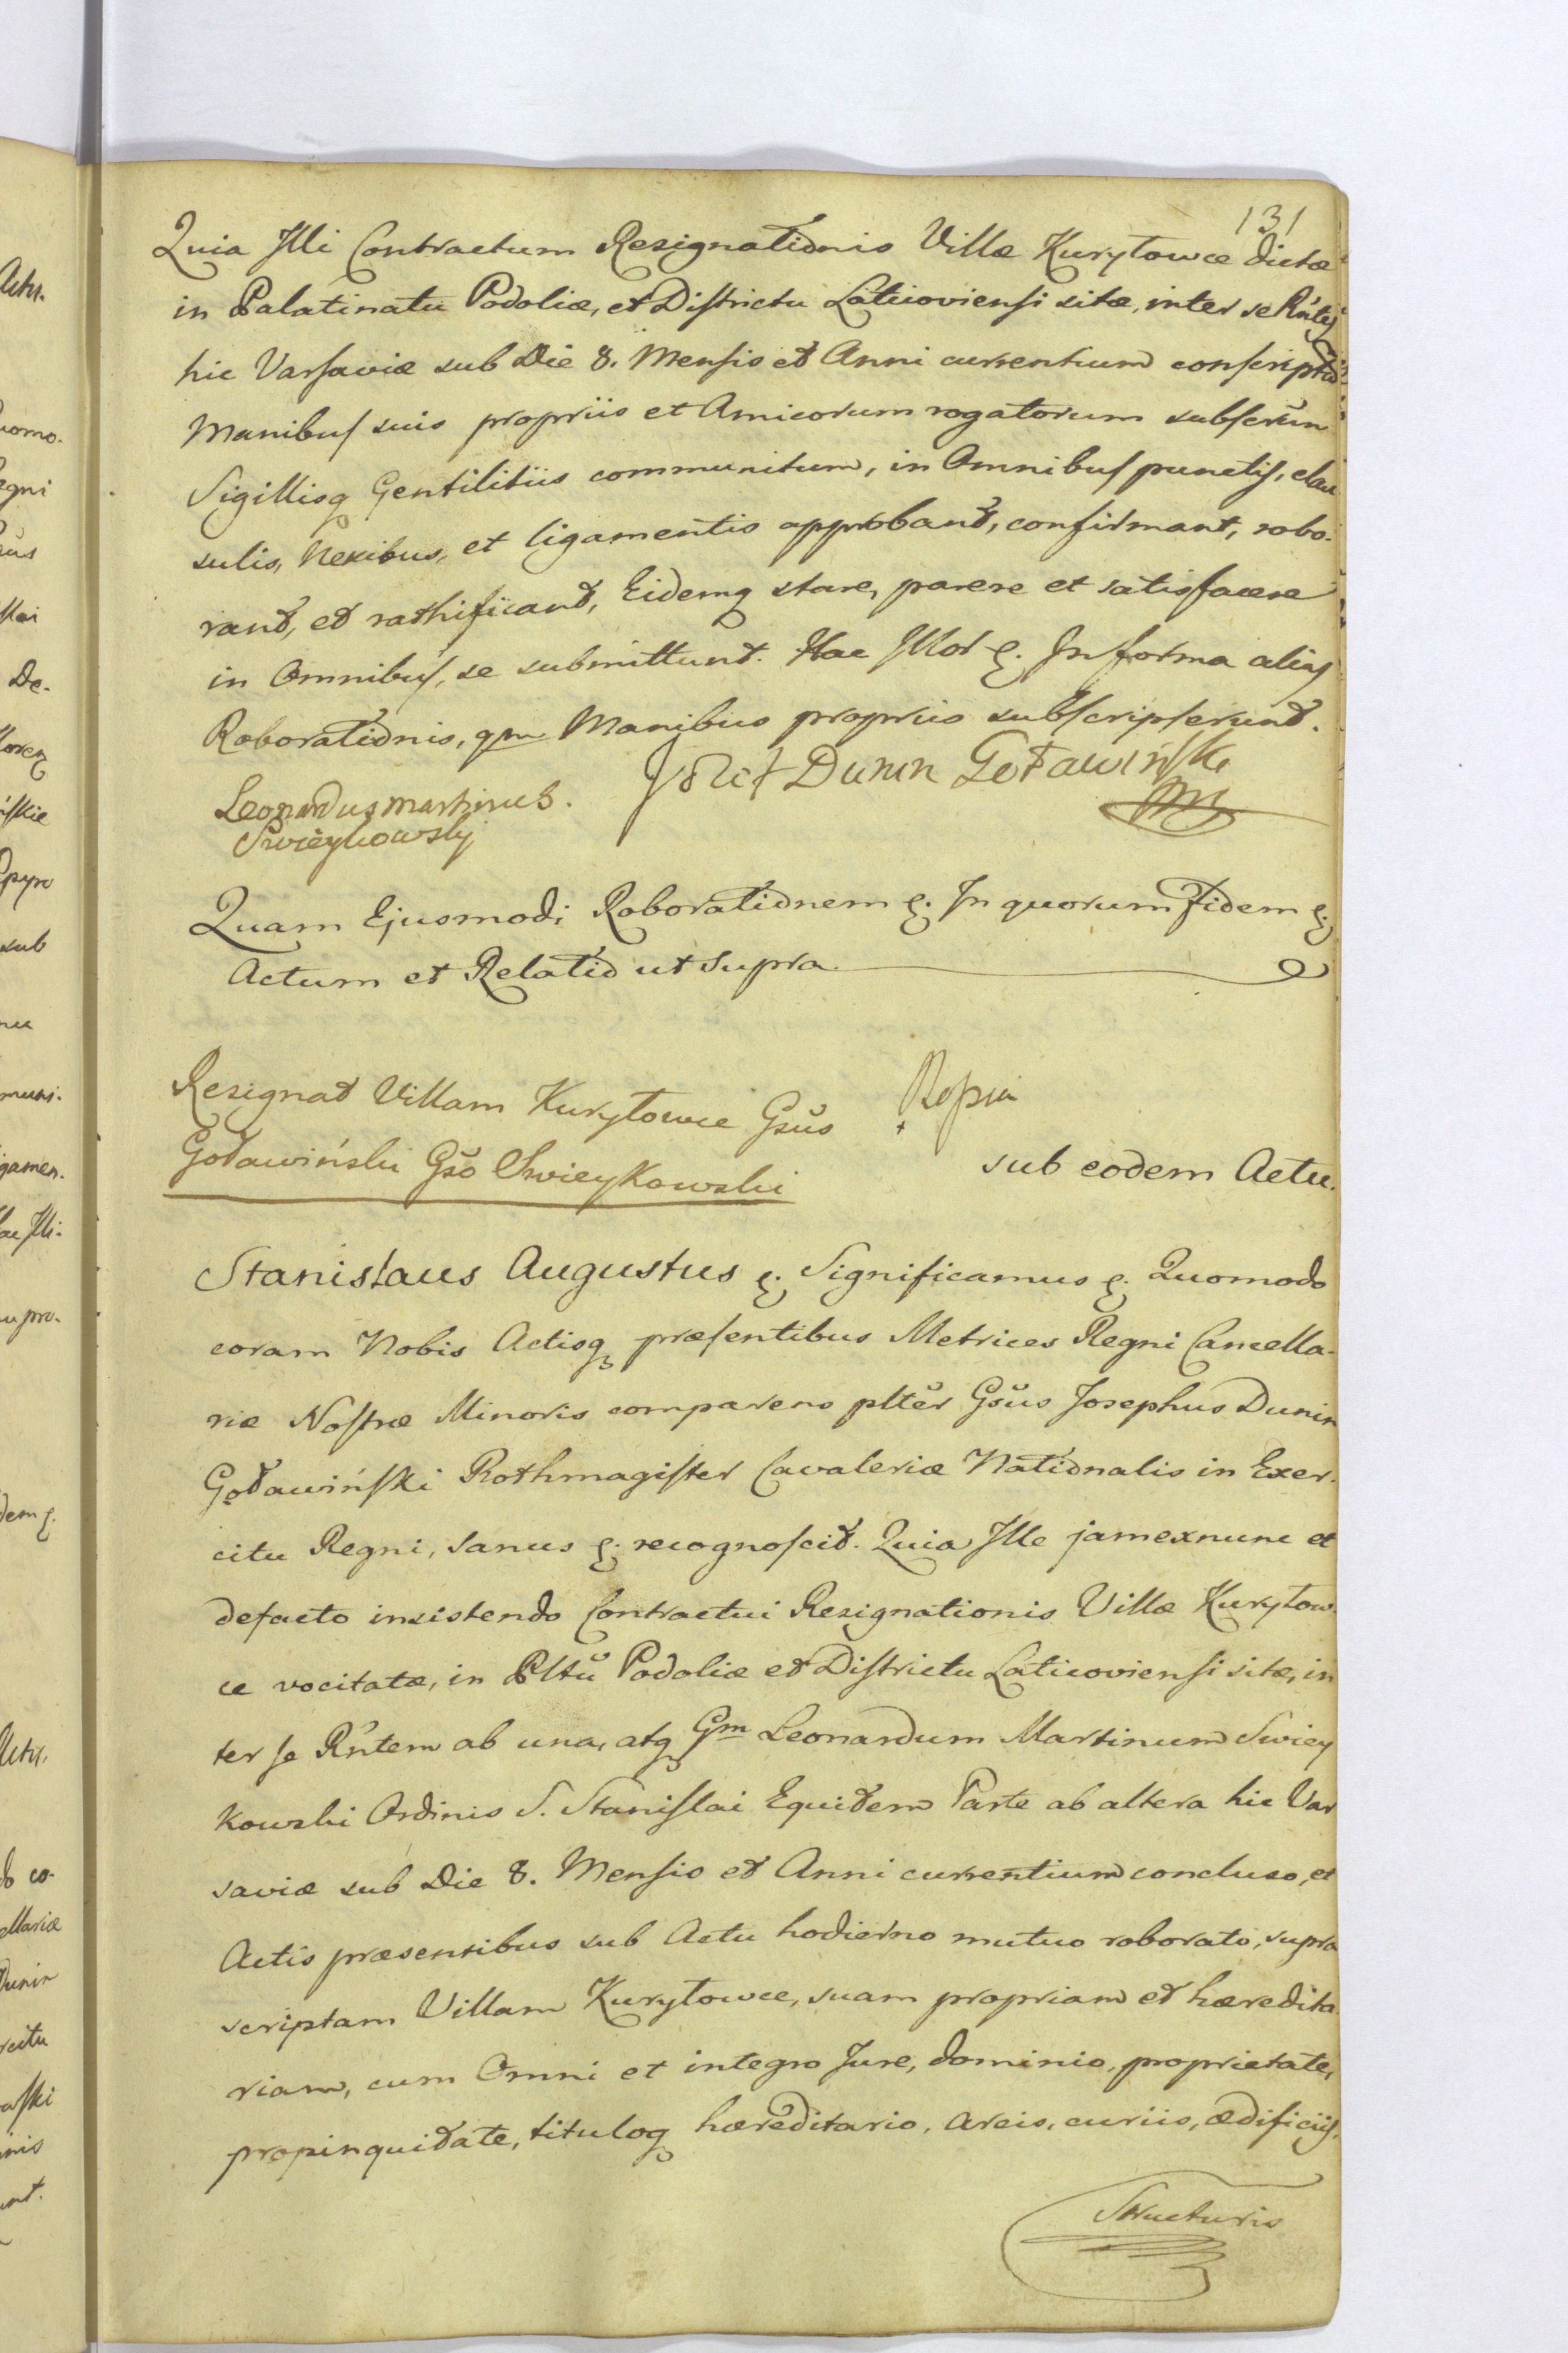 131
Quia Illi Contractum Resignationis Villæ Kuryłowce dictæ
in Palatinatu Podoliæ, et Districtu Laticoviensi sitæ, inter se Rńtes
hic Varsaviæ sub Die 8. Mensis et Anni currentium conscriptũ
Manibus suis propriis et Amicorum rogatorum subscrũm
Sigillisq Gentilitiis communitum, in Omnibus punctis, clau
sulis, Nexibus, et ligamentis approbant, confirmant, robo-
rant, et rathificant, Eidemq stare, parere et satisfacere
in Omnibus, se submittunt. Hac Illor ę. In forma alias
Roborationis, qm Manibus propriis subscripserunt.
Leonardus Martinus Józef Dunin Goławiński
Swieykowsky mp
Quam Ejusmodi Roborationem ę. In quorum Fidem ę.
Actum et Relatio ut supra.
Resignat Villam Kuryłowce Gsũs
Goławiński Gsõ Swieykowski
sub eodem Actu.
Stanislaus Augustus ę. Significamus ę. Quomodo
coram Nobis Actisq præsentibus Metrices Regni Cancella-
riæ Nostræ Minoris comparens pltẽr Gsũs Josephus Dunin
Goławiński Rothmagister Cavaleriæ Nationalis in Exer-
citu Regni, sanus ę. recognoscit. Quia Ille jamexnunc et
defacto insistendo Contractui Resignationis Villæ Kuryłow
ce vocitatæ, in Plttũ Podoliæ et Districtu Laticoviensi sitæ, in
ter se Rńtem ab una, atq Gm Leonardum Martinum Swiey
kowski Ordinis S. Stanislai Equitem Parte ab altera hic Var
saviæ sub Die 8. Mensis et Anni currentium concluso, et
Actis præsentibus sub Actu hodierno mutuo roborato, supra
scriptam Villam Kuryłowce, suam propriam et hæredita
riam, cum Omni et integro Jure, dominio, proprietate,
propinquitate, tituloq hæreditario, areis, curiis, ædificiis,
Structuris